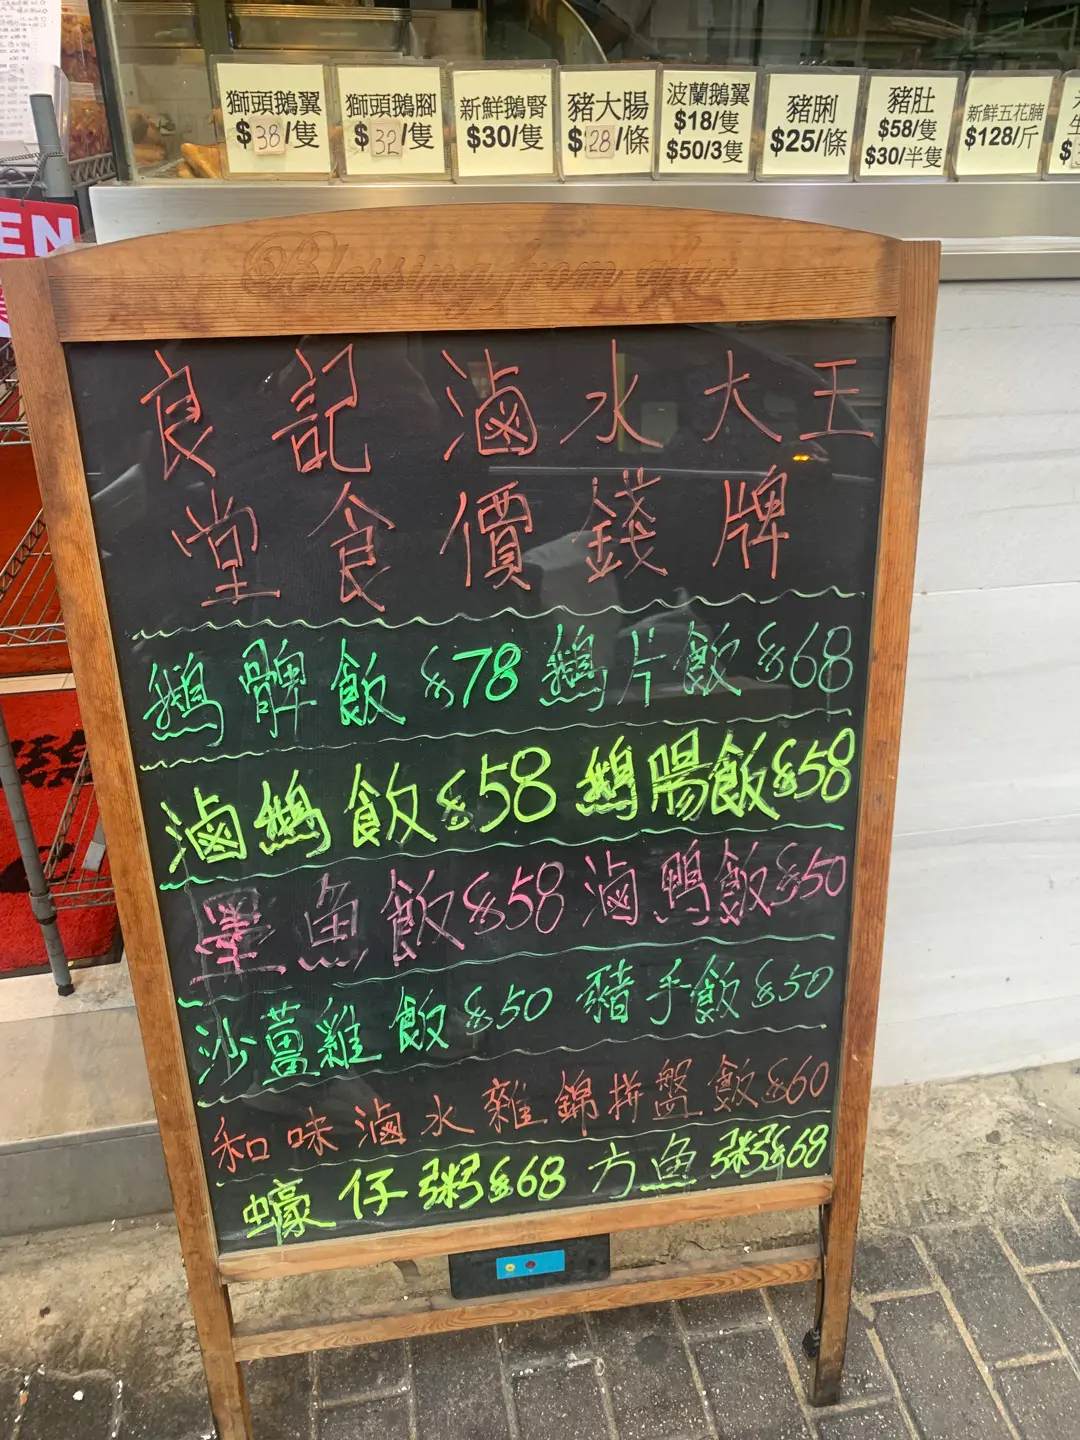 獅頭鵝翼
$38/隻
獅頭鵝腳
$32/隻
新鮮鵝腎
$30/隻
豬大腸
$128/條
波蘭鵝翼
$18/隻
$50/3隻
豬脷
$25/條
豬肚
$58/隻
$30/半隻
新鮮五花腩
$128/斤
EN
Blessing from
良記滷水大王
堂食價錢牌
鵝髀飯$78 鵝片飯$68
滷鵝飯$58 鵝腸飯$58
墨魚飯$58 滷鴨飯$50
沙薑雞飯$50 豬手飯$50
和味滷水雜錦拼盤飯$60
蠔仔粥$68 方魚粥$68